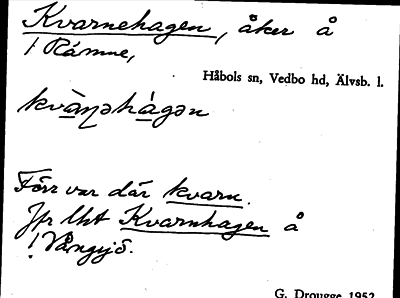 Kvarnehagen, åker å
1 Råmne,
Håbols sn, Vedbo hd, Älvsb. l.
kvàɳəhágən
Förr var där kvarn.
Jfr lht Kvarnhagen å
! Vångsjö.
G. Drougge 1952